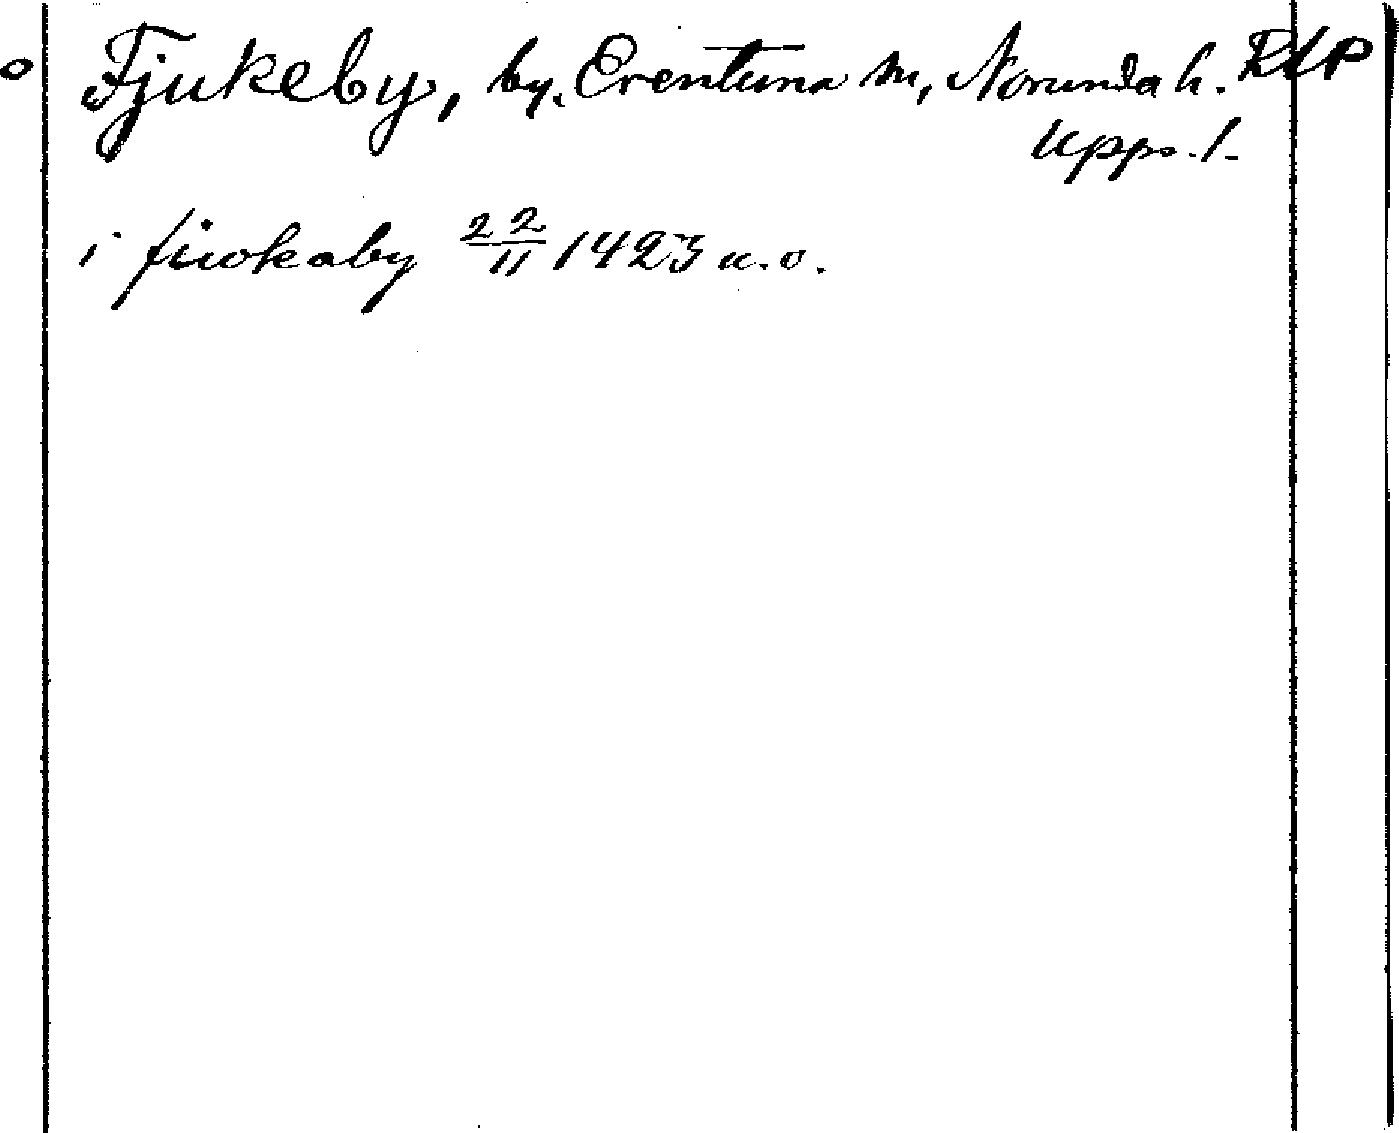 Fjukeby, by. Erentuna sn, Norunda h. RAP
Upps. l.
i fiwkaby 22/11 1423 u. o.